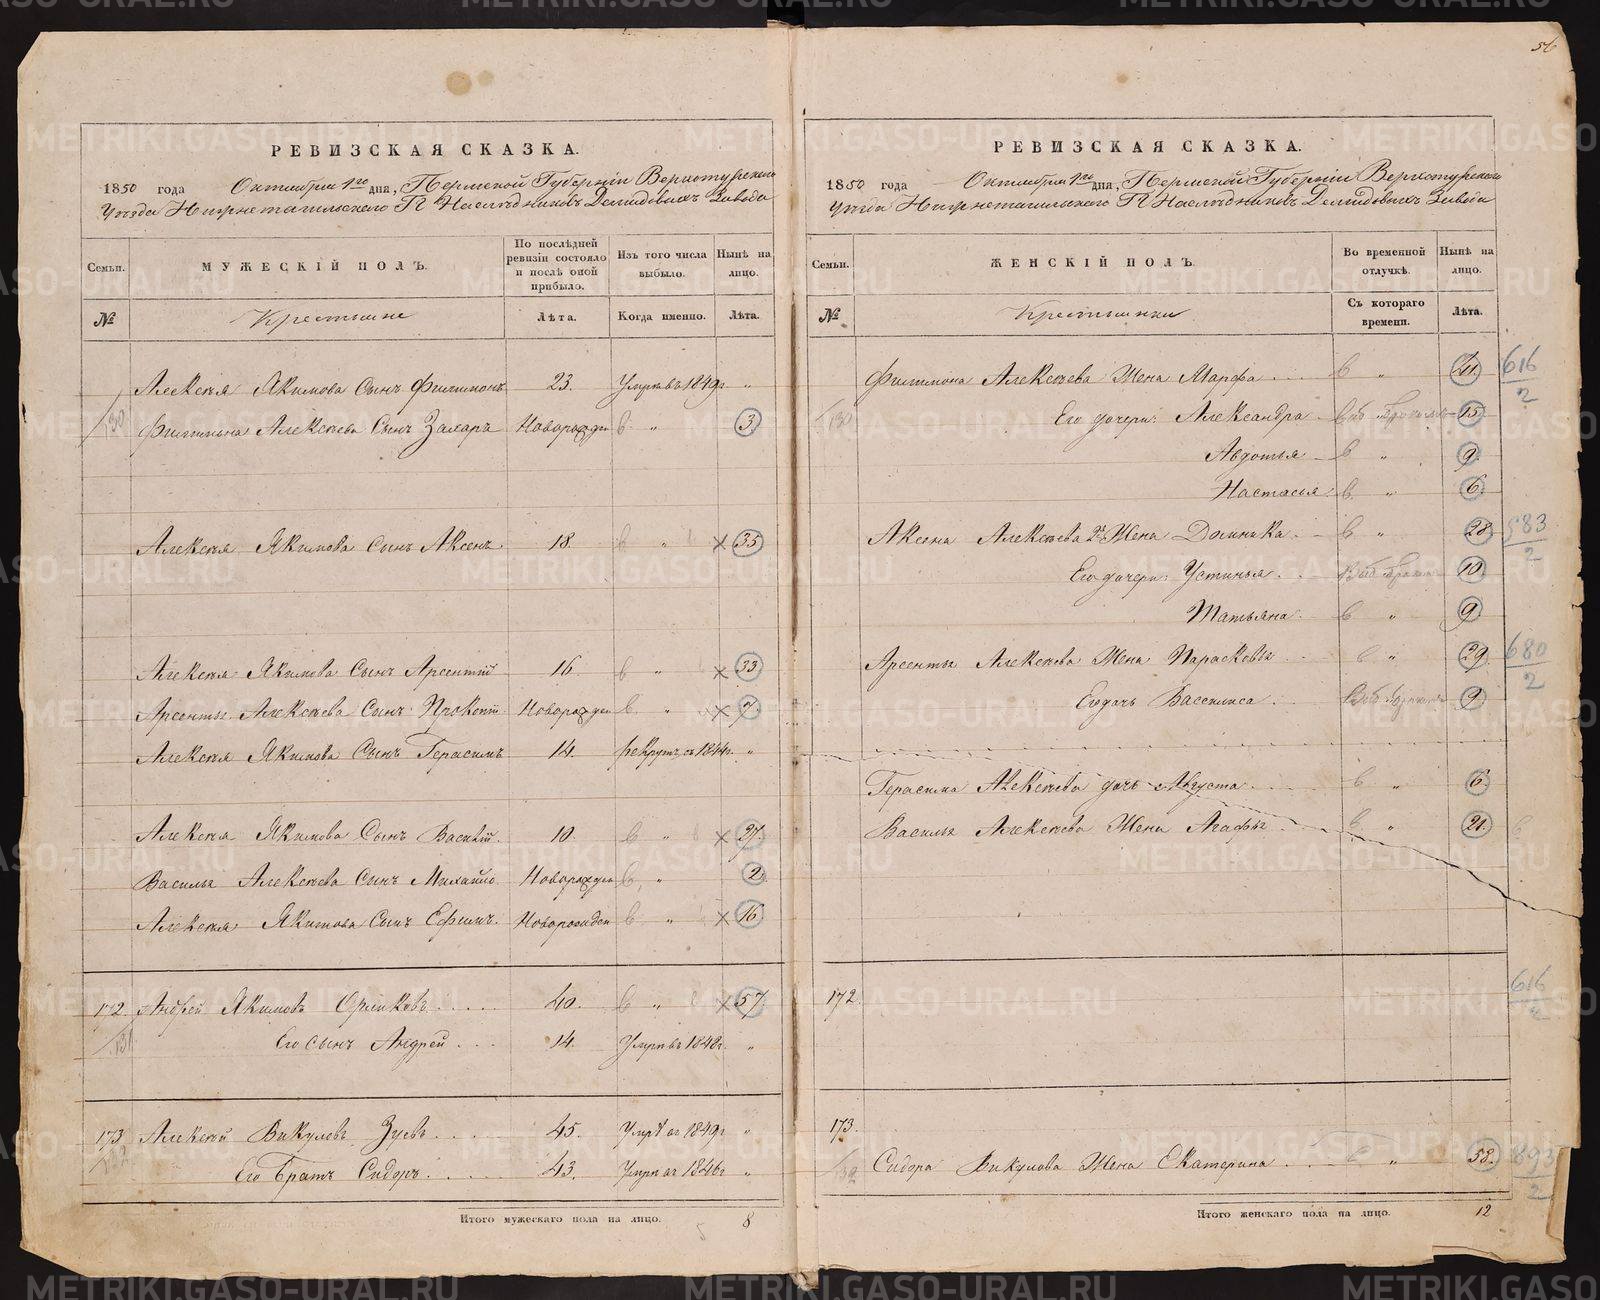 56
РЕВИЗСКАЯ СКАЗКА.
1850 года Октября 1го дня, Пермской Губерніи Верхотурскаго
Уѣзда Нижнетагильскаго Г.П. Наслѣдниковъ Демидовыхъ Завода
Семьи.
МУЖЕСКІЙ ПОЛЪ.
По послѣдней ревизіи состояло и послѣ оной прибыло.
Изъ того числа выбыло.
Нынѣ на лицо.
№
Крестьяне
Лѣта.
Когда именно.
Лѣта.
Алексѣя Якимова Сынъ Филимонъ 23. Умре въ 1849г "
130
Филимона Алексѣева Сынъ Захаръ Новорожден " 3
Алексѣя Якимова Сынъ Аксенъ. 18. " 35
Алексѣя Якимова Сынъ Арсентій 16 " 33
Арсентья Алексѣева Сынъ Прокопій Новорожден " 7
Алексѣя Якимова Сынъ Герасимъ 14. рекрутъ съ 1844г. "
Алексѣя Якимова Сынъ Василій. 10. " 27
Василья Алексѣева Сынъ Михайло Новорожден " 2
Алексѣя Якимова Сынъ Ефимъ. Новорожден " 16
172. Андрей Якимовъ Орликовъ 40. " 57
131
Его Сынъ Андрей 14. Умре въ 1848г "
173 Алексѣй Викуловъ Зуевъ 45. Умре въ 1849г "
132
Его Братъ Сидоръ 43. Умре въ 1846г "
Итого мужескаго пола на лицо. 8
РЕВИЗСКАЯ СКАЗКА.
1850 года Октября 1го дня, Пермской Губерніи Верхотурскаго
Уѣзда Нижнетагильскаго Г.П. Наслѣдниковъ Демидовыхъ Завода
Семьи.
ЖЕНСКІЙ ПОЛЪ.
Во временной отлучкѣ.
Нынѣ на лицо.
№
Крестьянки
Съ котораго времени.
Лѣта.
Филимона Алексѣева Жена Марфа " 41. 616/2
130
Его дочери: Александра 15
Авдотья " 9
Настасья " 6
Аксена Алексѣева 2я Жена Домника " 28 583/2
Его дочери: Устинья 10
Татьяна " 9
Арсентья Алексѣева Жена Парасковья " 29 680/2
Его дочь Василиса 9
Герасима Алексѣева дочь Августа " 6
Василья Алексѣева Жена Агафья " 21.
172. 616/2
173.
132
Сидора Викулова Жена Екатерина " 58. 893/2
Итого женскаго пола на лицо. 12
METRIKI.GASO-URAL.RU